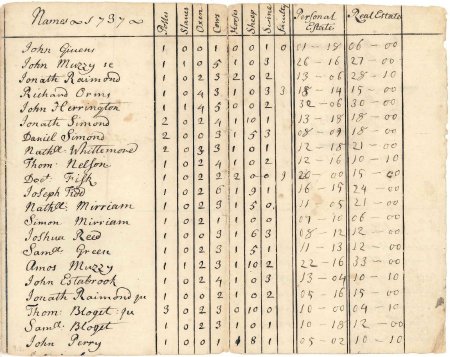 Names 1737 Polles Slaves Oxen Cows Horses Sheep Swine Faculty Personal Estate Real Estate
John Giuens 1 0 0 1 0 0 1 0 01 - 18 06 - 00
John Muzzy se 1 1 0 5 1 0 3 26 - 16 27 - 00
Jonath Raimond 1 0 2 3 2 0 2 13 - 06 28 - 10
Richard Orms 1 0 2 4 3 1 0 3 3 18 - 14 15 - 00
John Herrington 1 1 4 5 0 0 2 32 - 06 30 - 00
Jonath Simond 2 0 2 4 1 10 1 13 - 18 18 - 00
Daniel Simond 2 0 0 3 1 5 3 08 - 09 18 - 00
Nathll Whittemore 2 0 3 3 1 0 0 12 - 18 21 - 00
Thom Nelson 1 0 2 4 1 0 2 12 - 16 10 - 10
Doct Fisk 1 0 2 2 0 0 3 20 - 00 15 - 00
Joseph 1 0 2 6 1 9 1 16 - 15 24 - 00
Nathll Mirriam 1 0 2 3 1 5 0 11 - 05 21 - 00
Simon Mirriam 1 0 0 1 1 0 0 07 - 10 06 - 00
Joshua Reed 1 0 0 3 1 6 3 08 - 12 12 - 00
Samll Green 1 0 2 3 1 5 1 11 - 13 12 - 00
Amos Muzzy 1 0 2 3 1 10 2 22 - 16 33 - 00
John Estabrook 1 0 2 4 1 0 3 13 - 04 10 - 10
Jonath Raimond ju 1 0 0 2 1 0 0 05 - 16 15 - 00
Thom Bloget ju 3 0 2 3 0 10 0 10 - 00 04 - 10
Samll Bloget 1 0 2 3 1 0 1 10 - 18 12 - 00
John Perry 1 0 0 1 8 1 05 - 02 10 - 10